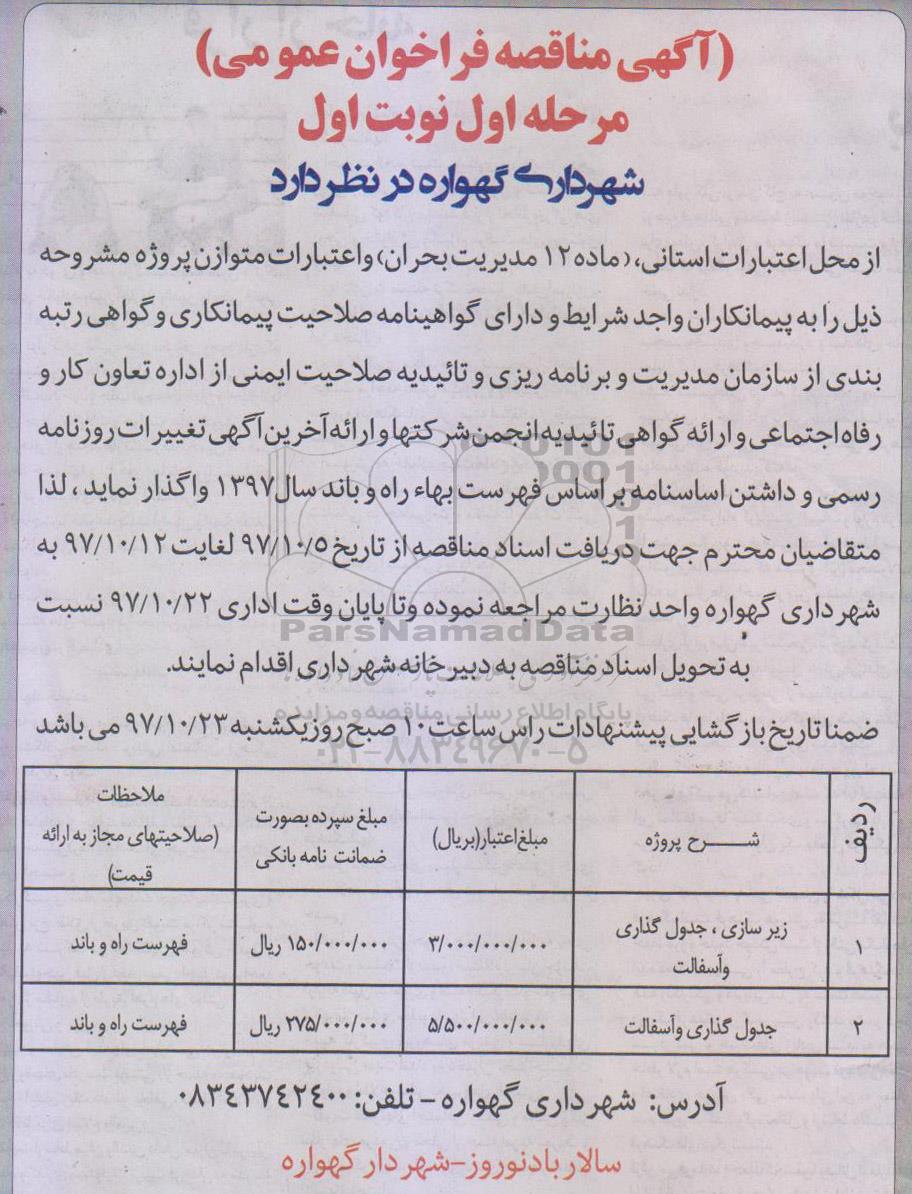 (آگهی مناقصه فراخوان عمومی)
مرحله اول نوبت اول
شهرداری گهواره در نظر دارد
از محل اعتبارات استانی، (ماده ۱۲ مدیریت بحران) و اعتبارات متوازن پروژه مشروحه
ذیل را به پیمانکاران واجد شرایط و دارای گواهینامه صلاحیت پیمانکاری و گواهی رتبه
بندی از سازمان مدیریت و برنامه ریزی و تائیدیه صلاحیت ایمنی از اداره تعاون کار و
رفاه اجتماعی و ارائه گواهی تائیدیه انجمن شرکتها و ارائه آخرین آگهی تغییرات روزنامه
رسمی و داشتن اساسنامه بر اساس فهرست بهاء راه و باند سال ۱۳۹۷ واگذار نماید ، لذا
متقاضیان محترم جهت دریافت اسناد مناقصه از تاریخ ۹۷/۱۰/۵ لغایت ۹۷/۱۰/۱۲ به
شهرداری گهواره واحد نظارت مراجعه نموده و تا پایان وقت اداری ۹۷/۱۰/۲۲ نسبت
به تحویل اسناد مناقصه به دبیرخانه شهرداری اقدام نمایند.
ParsNamadData
پایگاه اطلاع رسانی مناقصه و مزایده
ضمنا تاریخ بازگشایی پیشنهادات راس ساعت ۱۰ صبح روز یکشنبه ۹۷/۱۰/۲۳ می باشد
۰۲۱-۸۸۳۴۹۶۷۰-۵
ردیف | شـــرح پروژه | مبلغ اعتبار(بریال) | مبلغ سپرده بصورت ضمانت نامه بانکی | ملاحظات (صلاحیتهای مجاز به ارائه قیمت)
۱ | زیر سازی ، جدول گذاری وآسفالت | ۳/۰۰۰/۰۰۰/۰۰۰ | ۱۵۰/۰۰۰/۰۰۰ ریال | فهرست راه و باند
۲ | جدول گذاری وآسفالت | ۵/۵۰۰/۰۰۰/۰۰۰ | ۲۷۵/۰۰۰/۰۰۰ ریال | فهرست راه و باند
آدرس: شهرداری گهواره – تلفن: ۰۸۳۴۳۷۴۲۴۰۰
سالار بادنوروز–شهردار گهواره